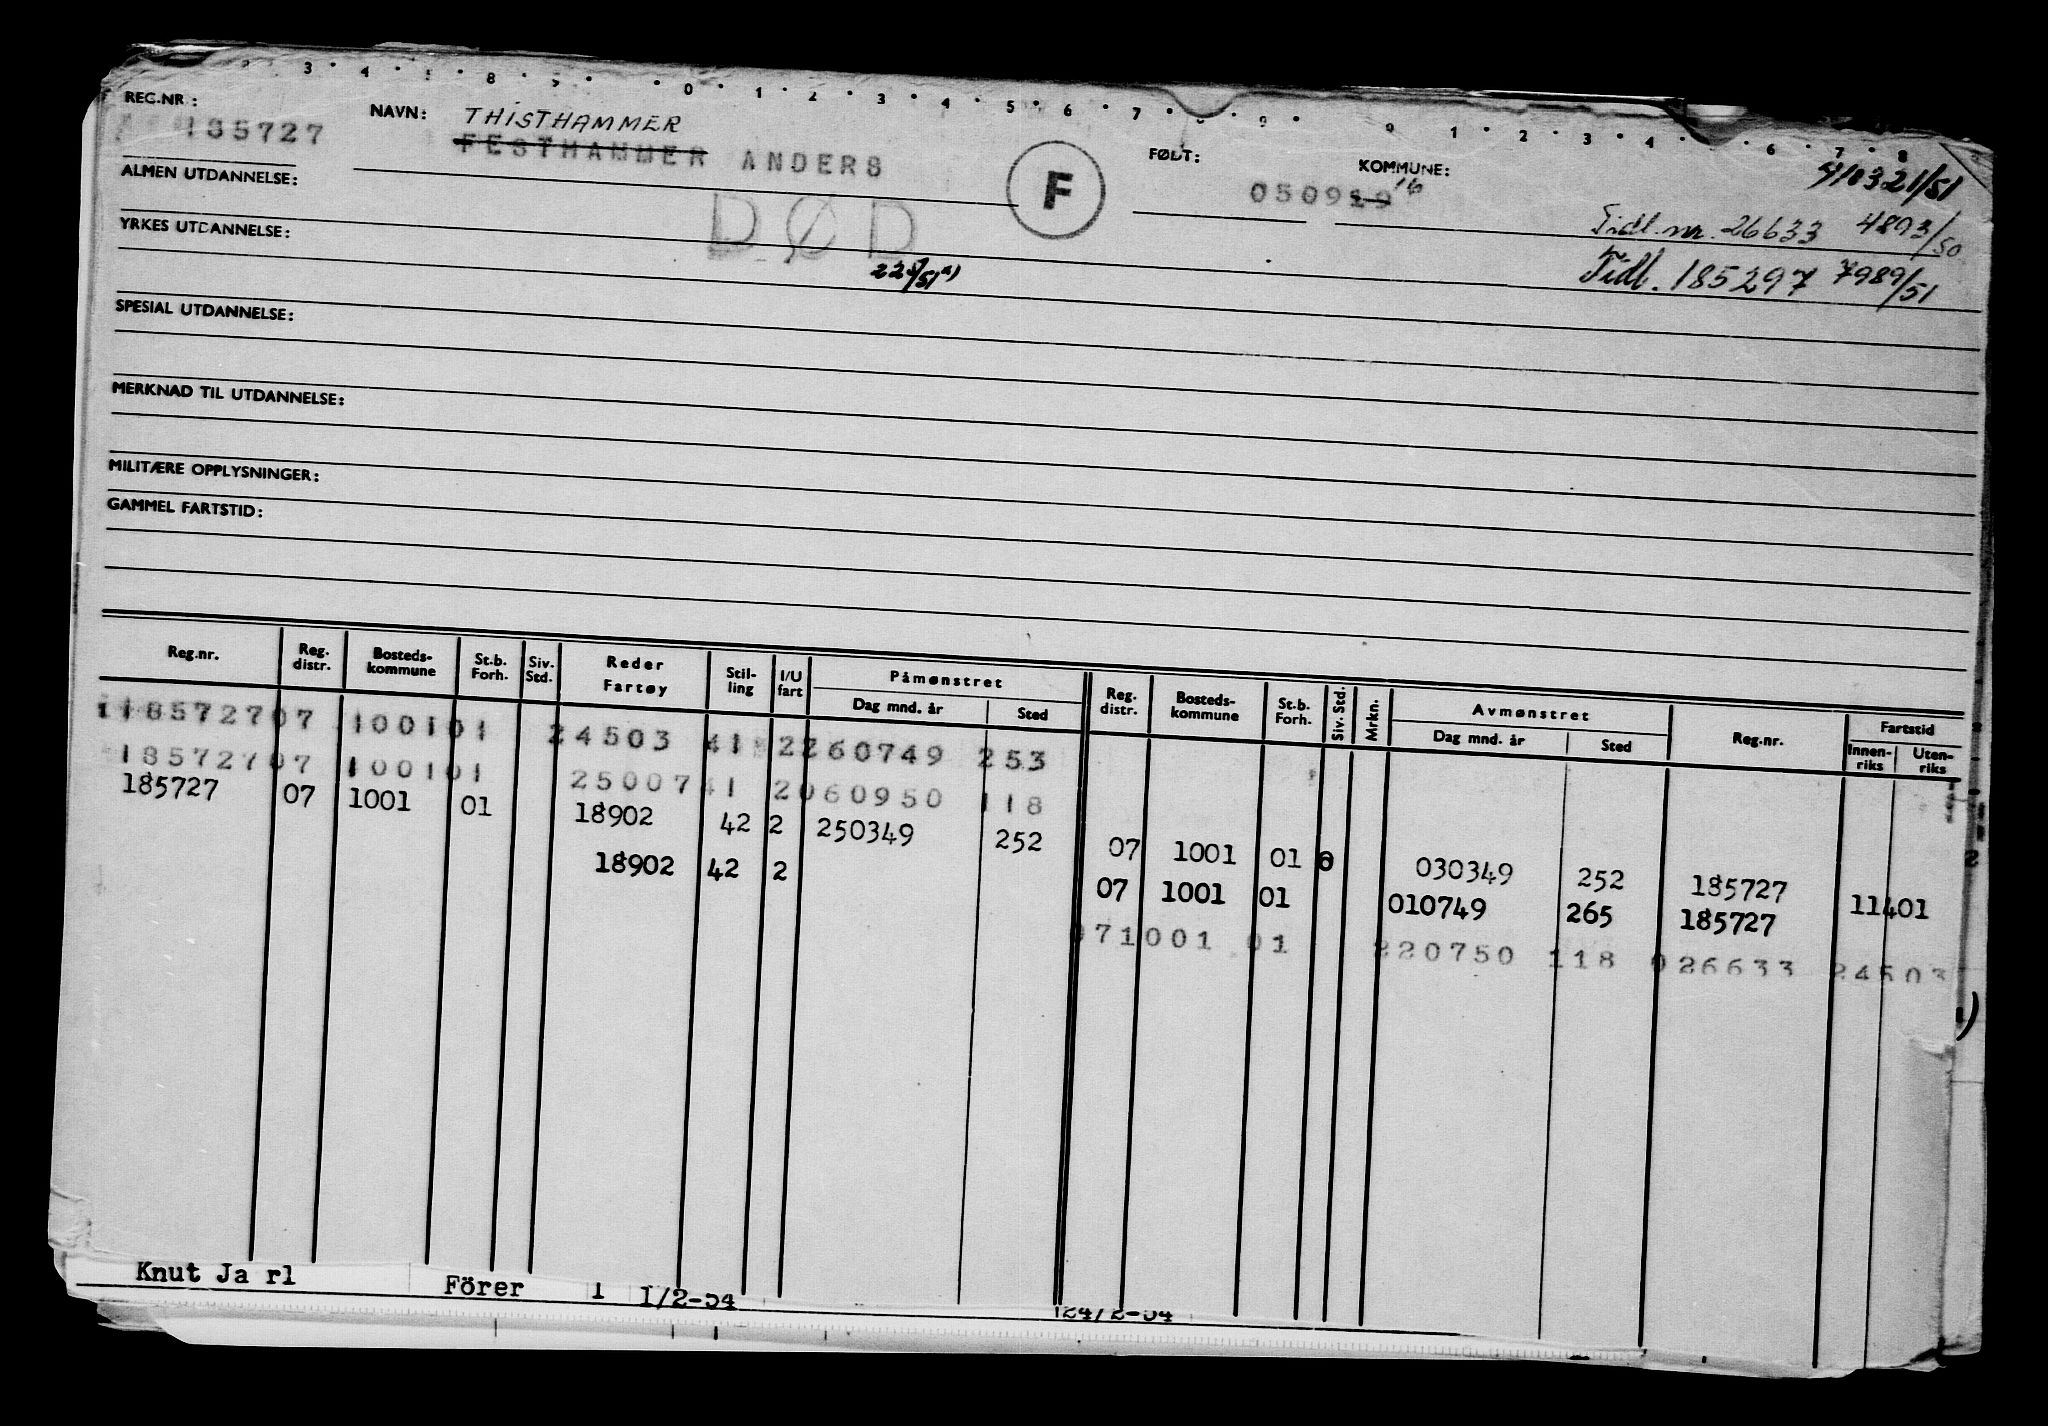 REG.NR: 185727
NAVN: THISTHAMMER
FESTHAMMER ANDERS
F
FØDT: 050919 16
KOMMUNE:
Tidl. nr. 26633 4893/50
Tidl. 185297 7989/51
ALMEN UTDANNELSE:
DØD
YRKES UTDANNELSE:
SPESIAL UTDANNELSE:
MERKNAD TIL UTDANNELSE:
MILITÆRE OPPLYSNINGER:
GAMMEL FARTSTID:
Reg.nr. Reg. distr. Bosteds-kommune St.b. Forh. Siv. Std. Reder Fartøy Stil-ling I/U fart Påmønstret Dag mnd. år Sted Reg. distr. Bosteds-kommune St.b. Forh. Siv. Std. Mrkn. Avmønstret Dag mnd. år Sted Reg.nr. Fartstid Innen-riks Uten-riks
118572707 100101 24503 41 2260749 253
18572707 100101 2500741 2060950 118
185727 07 1001 01 18902 42 2 250349 252 07 1001 01 6 030349 252 185727 11401
18902 42 2 07 1001 01 010749 265 185727
071001 01 220750 118 026633 24503
Knut Ja rl Förer 1 1/2-54 24/2-54